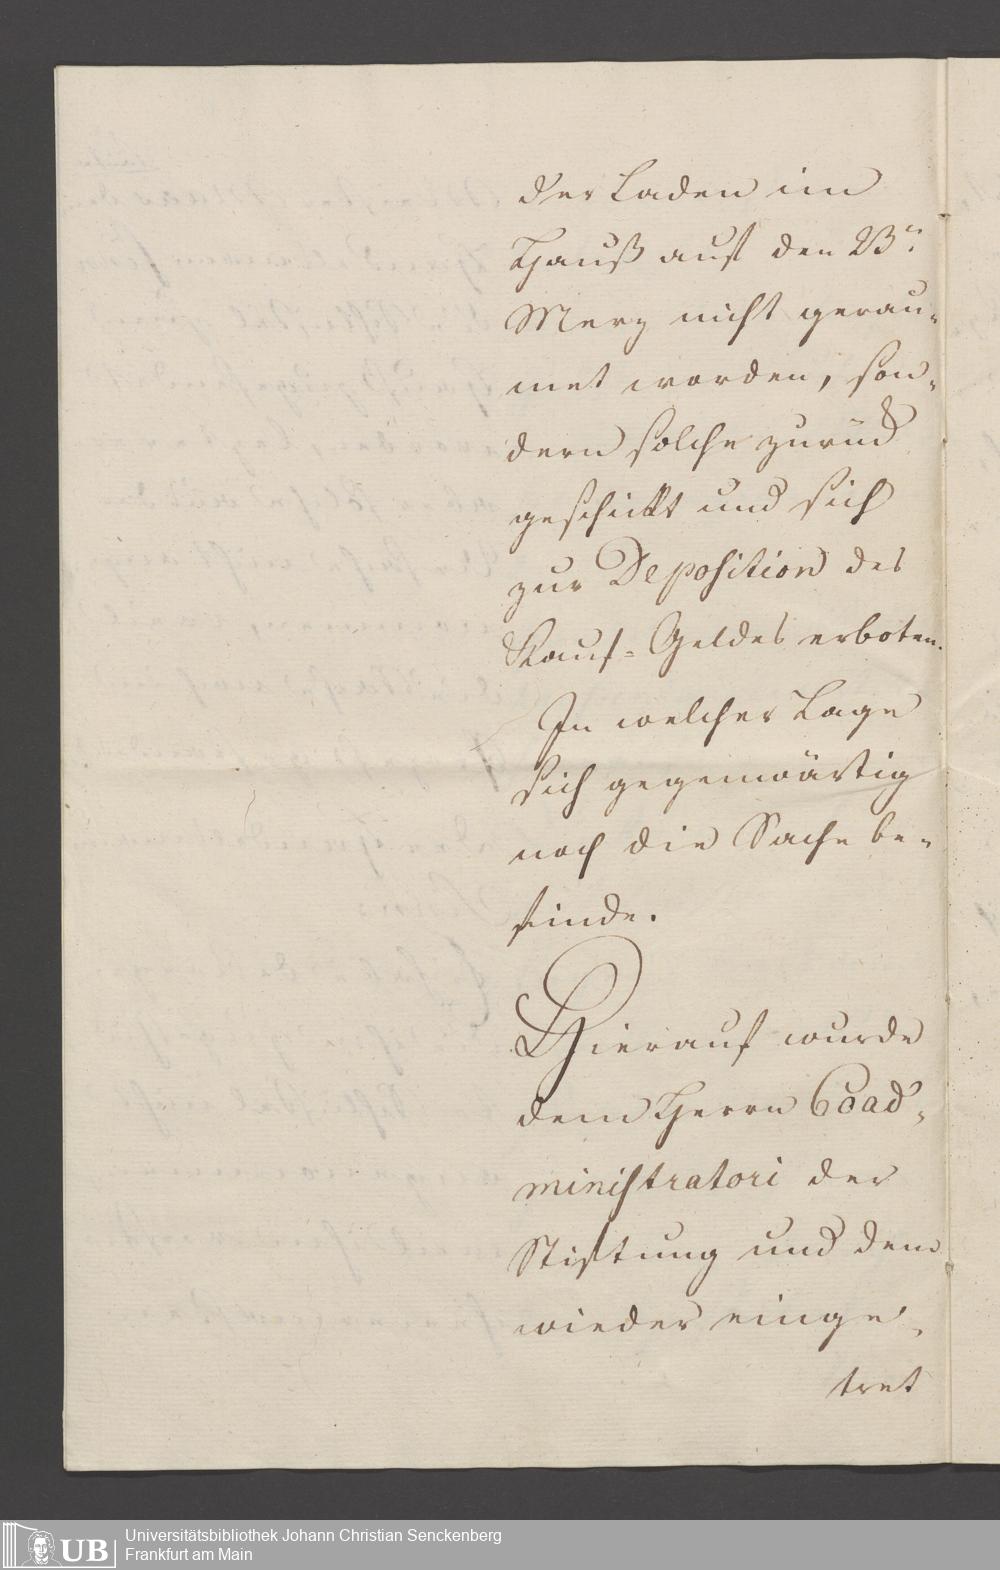 der Laden im
Hauß auf den 23n.
Merz nicht gerau-
met worden, son-
dern solche zurück
geschickt und sich
zur Deposition des
Kauf-Geldes erboten.
In welcher Lage
sich gegenwärtig
noch die Sache be-
finde.
Hierauf wurde
dem Herrn Coad-
ministratori der
Stiftung und dem
wieder einge-
tret
UB
Universitätsbibliothek Johann Christian Senckenberg
Frankfurt am Main